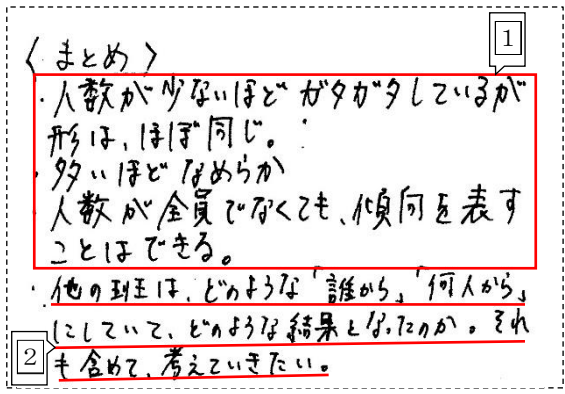 1
〈まとめ〉
・人数が少ないほどガタガタしているが
形は、ほぼ同じ。
・多いほどなめらか
人数が全員でなくても、傾向を表す
ことはできる。
・他の班は、どのような「誰から」「何人から」
にしていて、どのような結果となったのか。それ
2
も含めて、考えていきたい。